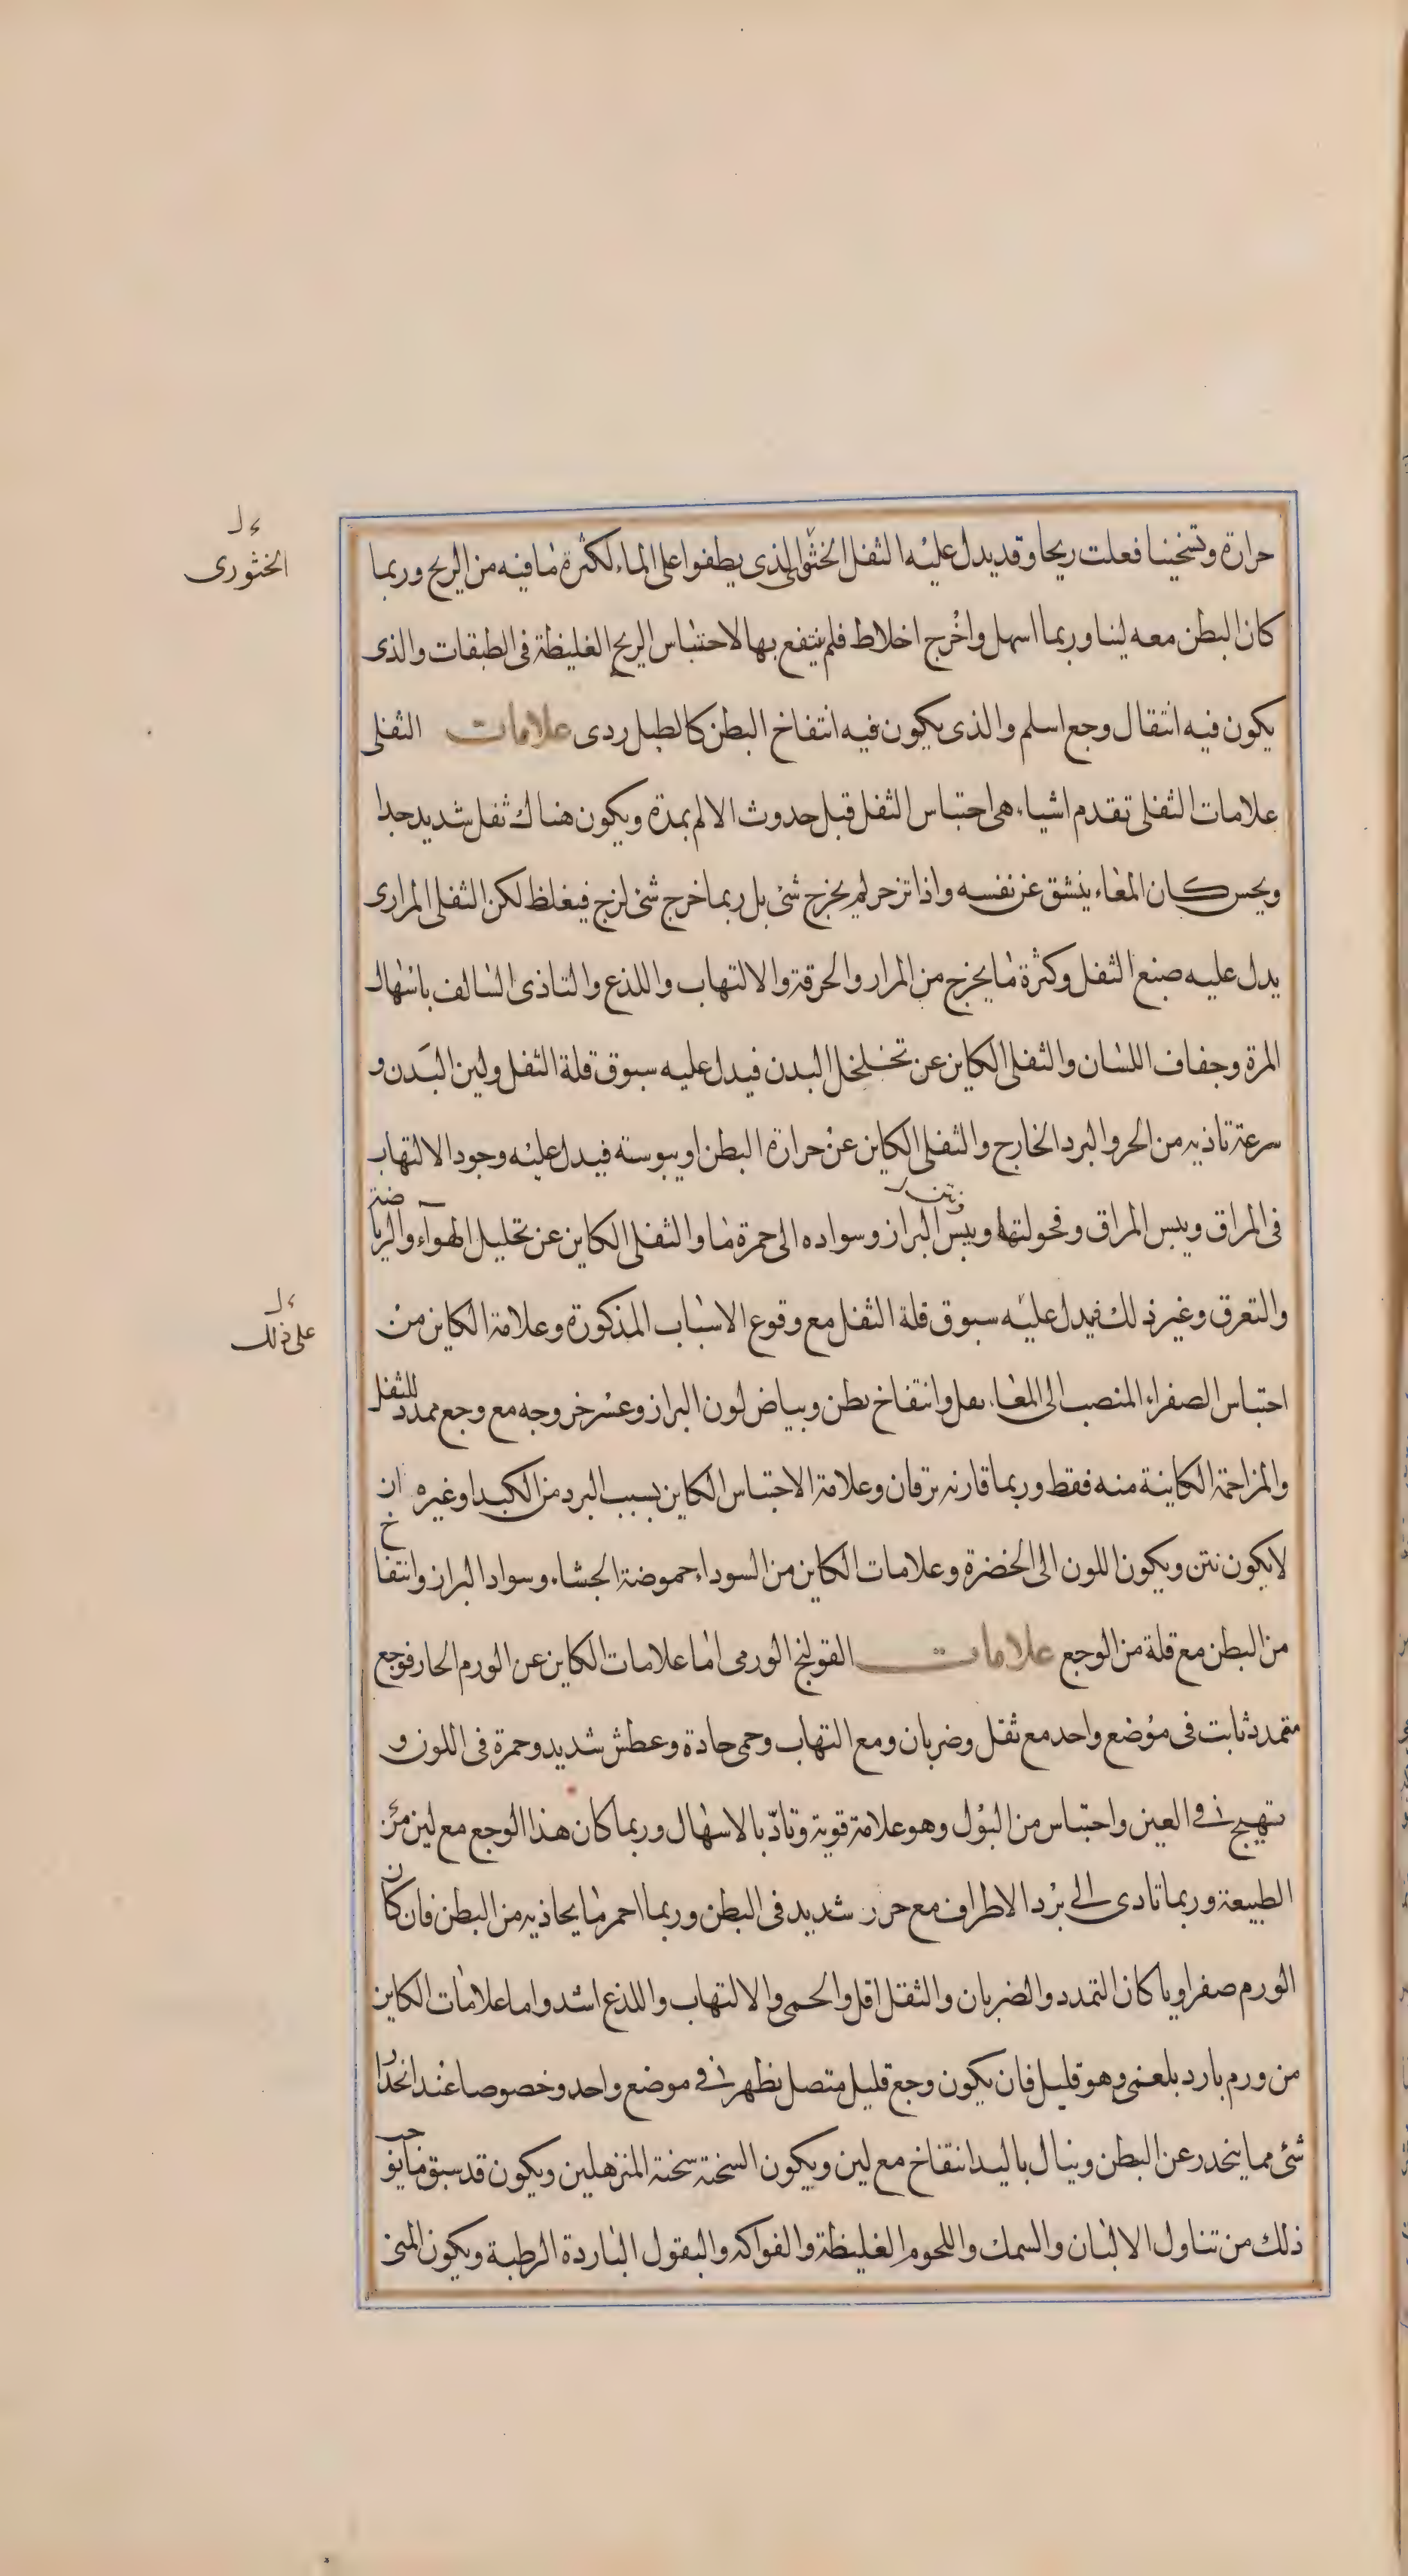 حرارة وتسخينا فعلت ريحا وقد يدل عليه الثفل الخثوالى الذى يطفوا على الماء لكثرة ما فيه من الريح وربما
كان البطن معه لينا وربما اسهل واخرج اخلاط فلم ينتفع بها لاحتباس الريح الغليظة فى الطبقات والذى
يكون فيه انتقال وجع اسلم والذى يكون فيه انتفاخ البطن كالطبل ردى علامات الثفلى
علامات الثفلى تقدم اشياء هى احتباس الثفل قبل حدوث الالم بمدة ويكون هناك ثقل شديد جدا
ويحس كان المعاء ينشق عن نفسه واذا تزحر لم يخرج شئ بل ربما خرج شئ لزج فيغلظ لكن الثفلى المرارى
يدل عليه صبغ الثفل وكثرة ما يخرج من المرار والحرقة والالتهاب واللذع والتاذى السالف باسهال
المرة وجفاف اللسان والثفلى الكاين عن تخلخل البدن فيدل عليه سبوق قلة الثفل ولين البدن و
سرعة تاذيه من الحر والبرد الخارج والثفلى الكاين عن حرارة البطن او يبوسته فيدل عليه وجود الالتهاب
فى المراق ويبس المراق وفحولتها ويبس البراز وسواده الى حمرة ما والثفلى الكاين عن تحليل الهواء والرياضة
والتعرق وغير ذلك فيدل عليه سبوق قلة الثفل مع وقوع الاسباب المذكورة وعلامة الكاين من
احتباس الصفراء المنصب الى المعاء ثقل وانتفاخ بطن وبياض لون البراز وعسر خروجه مع وجع ممدد للثفل
والمزاحمة الكاينة منه فقط وربما قارنه يرقان وعلامة الاحتباس الكاين بسبب البرد من الكبد او غيره ان
لا يكون نتن ويكون اللون الى الخضرة وعلامات الكاين من السوداء حموضة الجشاء وسواد البراز وانتفاخ
من البطن مع قلة من الوجع علامات القولنج الورمى اما علامات الكاين عن الورم الحار فوجع
متمدد ثابت فى موضع واحد مع ثقل وضربان ومع التهاب وحمى حادة وعطش شديد وحمرة فى اللون و
تهيج فى العين واحتباس من البول وهو علامة قوية وتاذّ بالاسهال وربما كان هذا الوجع مع لين من
الطبيعة وربما تادى الى برد الاطراف مع حرر شديد فى البطن وربما احمر ما يحاذيه من البطن فان كان
الورم صفراويا كان التمدد والضربان والثقل اقل والحمى والالتهاب واللذع اشد واما علامات الكاين
من ورم بارد بلغمى وهو قليل فان يكون وجع قليل متصل يظهر فى موضع واحد وخصوصا عند انحدار
شئ مما ينحدر عن البطن وينال باليد انتفاخ مع لين ويكون السحنة سحنة المترهلين ويكون قد سبق ما يوجب
ذلك من تناول الالبان والسمك واللحوم الغليظة والفواكه والبقول الباردة الرطبة ويكون المنى
الخثورى
على ذلك